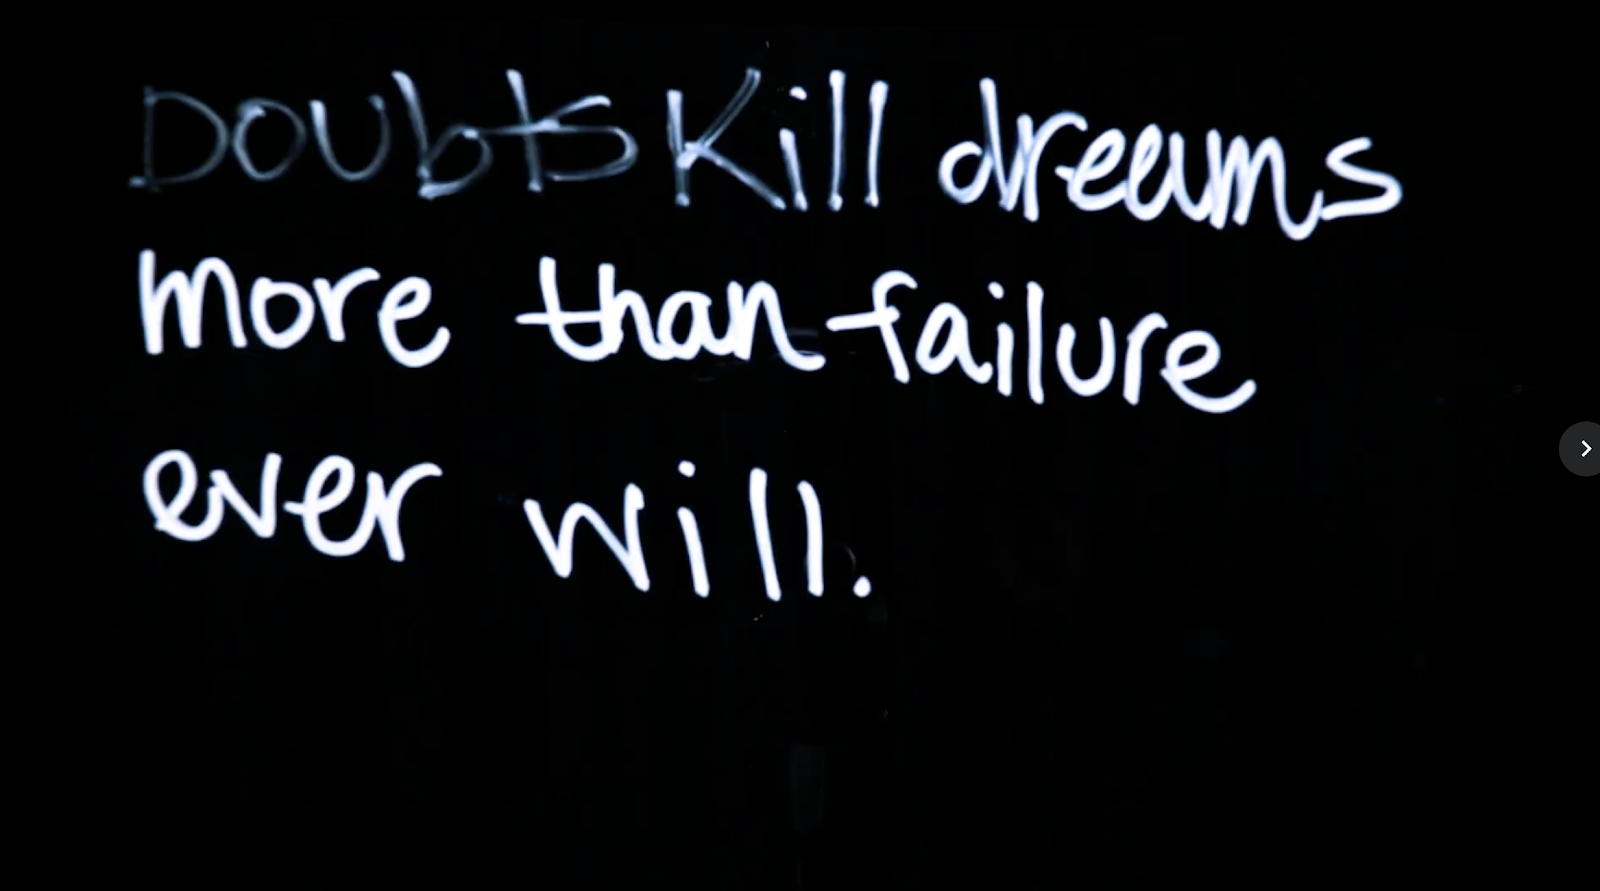 Doubts Kill dreams
more than failure
ever will.